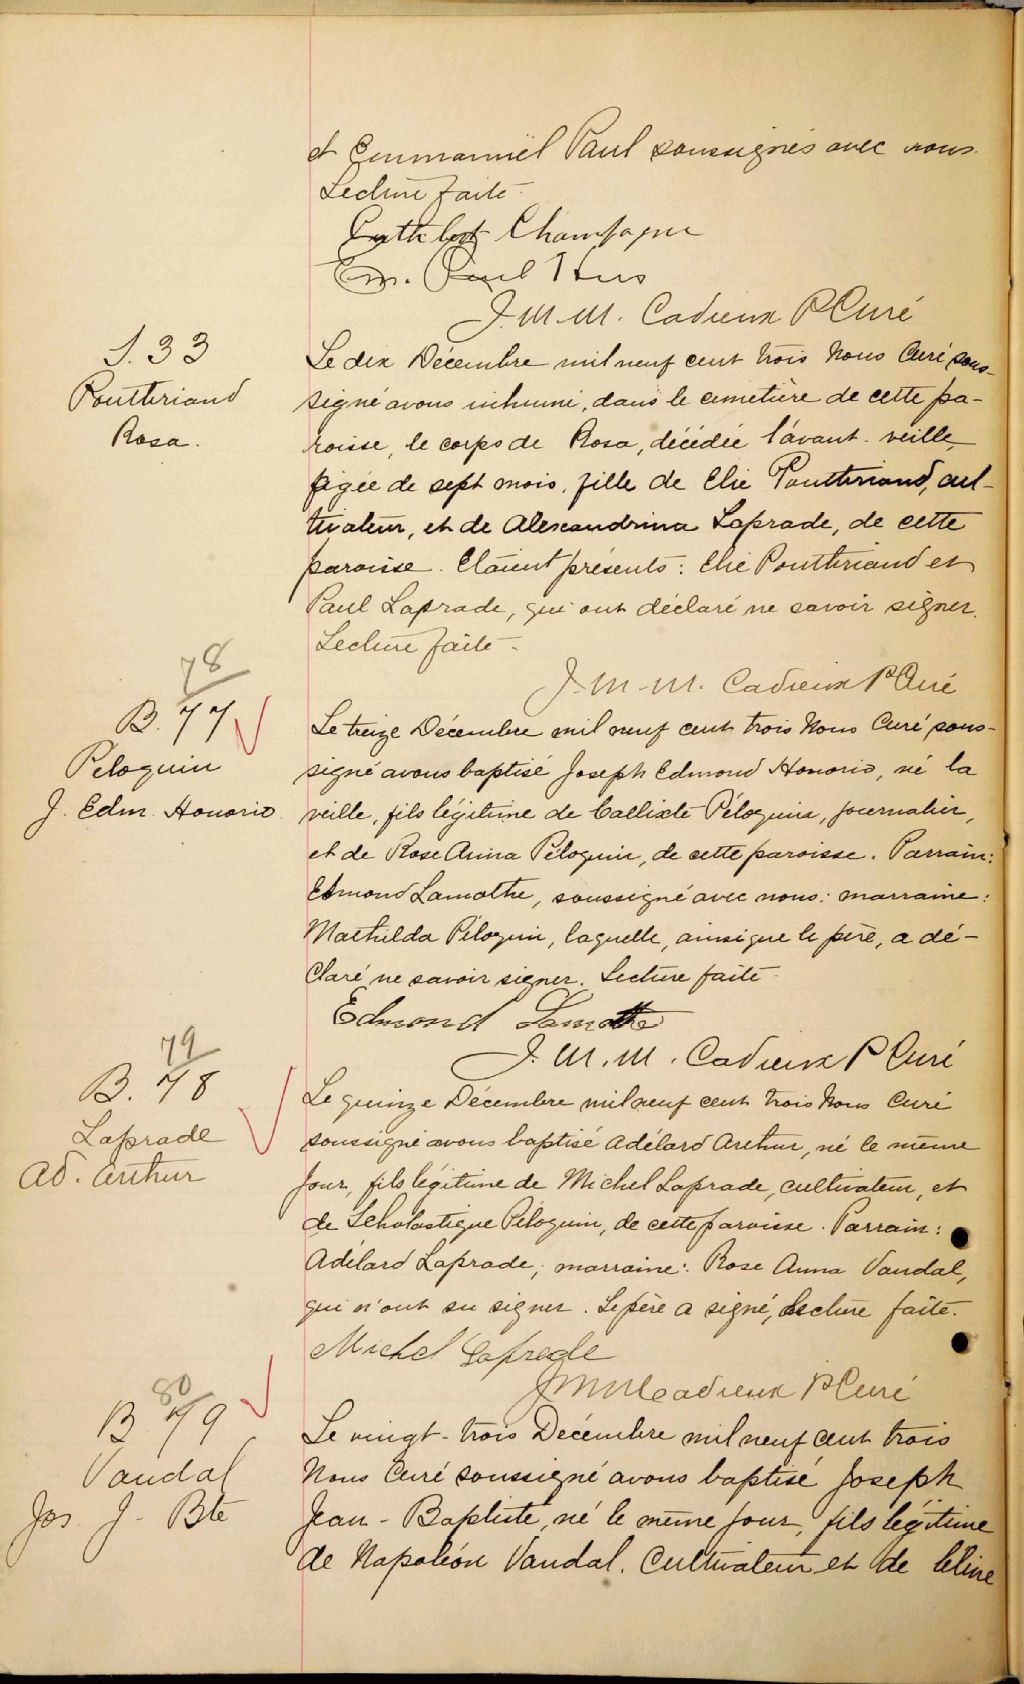 et Emmanuël Paul soussignés avec nous.
Lecture faite.
Cuthbert Champagne
Em. Paul Hus
J. M. M. Cadieux Ptre Curé
S. 33
Pouthriand
Rosa.
Le dix Décembre mil neuf cent trois Nous Curé sous-
signé avons inhumé, dans le cimetière de cette pa-
roisse, le corps de Rosa, décédée l'avant-veille,
âgée de sept mois, fille de Elie Pouthriand, cul-
tivateur, et de Alexandrina Laprade, de cette
paroisse. Etaient présents: Elie Pouthriand et
Paul Laprade, qui ont déclaré ne savoir signer.
Lecture faite.
J. M. M. Cadieux Ptre Curé
78
B. 77
Péloquin
J. Edm. Honorio
Le treize Décembre mil neuf cent trois Nous Curé sous-
signé avons baptisé Joseph Edmond Honorio, né la
veille, fils légitime de Callixte Péloquin, journalier,
et de Rose Anna Péloquin, de cette paroisse. Parrain:
Edmond Lamothe, soussigné avec nous; marraine:
Mathilda Péloquin, laquelle, ainsi que le père, a dé-
claré ne savoir signer. Lecture faite.
Edmond Lamothe
J. M. M. Cadieux P Curé
79
B. 78
Laprade
Ad. Arthur
Le quinze Décembre mil neuf cent trois Nous Curé
soussigné avons baptisé Adélard Arthur, né le même
jour, fils légitime de Michel Laprade, cultivateur, et
de Scholastique Péloquin, de cette paroisse. Parrain:
Adélard Laprade; marraine: Rose Anna Vandal,
qui n'ont su signer. Le père a signé, Lecture faite.
Michel Laprade
J M M Cadieux Ptre Curé
80
B 79
Vandal
Jos. J. Bte
Le vingt-trois Décembre mil neuf cent trois
Nous Curé soussigné avons baptisé Joseph
Jean-Baptiste, né le même jour, fils légitime
de Napoléon Vandal, Cultivateur et de Céline